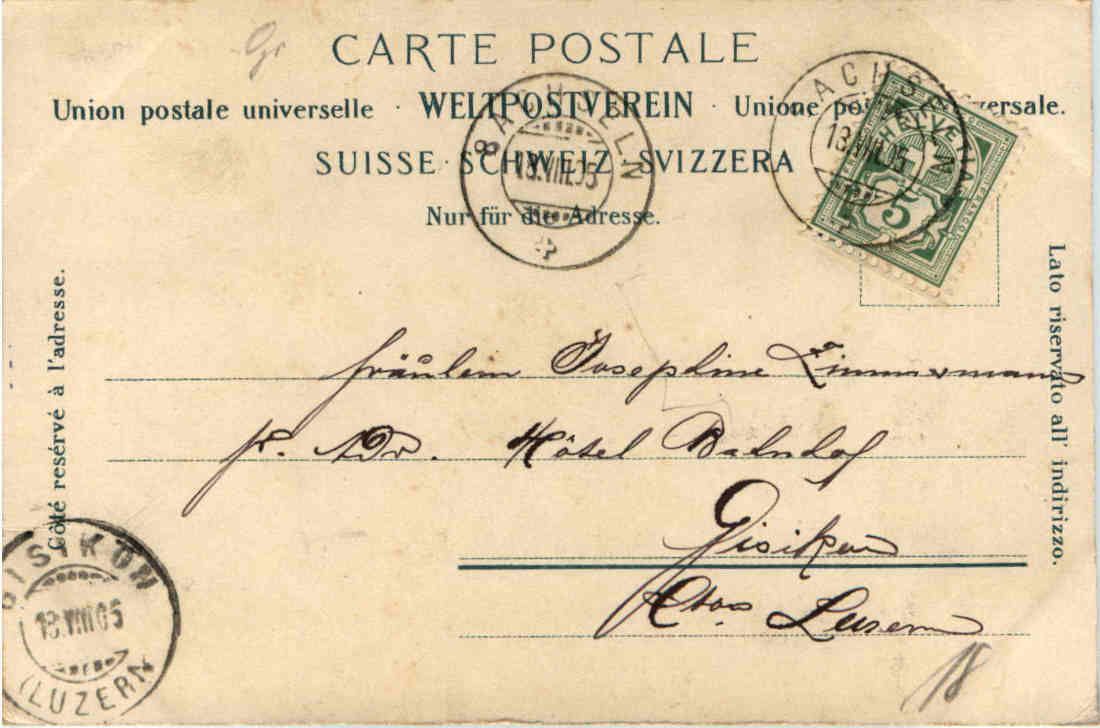 CARTE POSTALE
Union postale universelle · WELTPOSTVEREIN · Unione postale universale.
SUISSE · SCHWEIZ · SVIZZERA
Nur für die Adresse.
SACHSELN
18.VIII.05
SACHSELN
18.VIII.05
HELVETIA
5
FRANCO
Côté resérvé à l'adresse.
Lato riservato all' indirizzo.
Fräulein Josephine Zimmermann
pr. Adr. Hôtel Bahnhof
Gisikon
Cton Luzern
GISIKON
18.VIII.05
(LUZERN
18